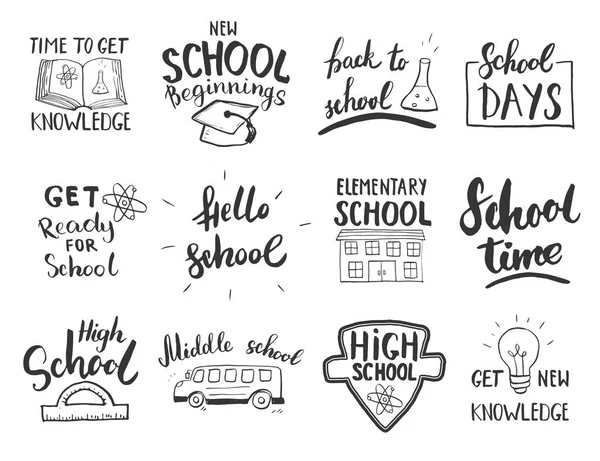 TIME TO GET
KNOWLEDGE
NEW
SCHOOL
Beginnings
back to
school
School
DAYS
GET
Ready
FOR
School
Hello
school
ELEMENTARY
SCHOOL
School
time
High
School
Middle school
HiGH
SCHOOL
GET NEW
KNOWLEDGE